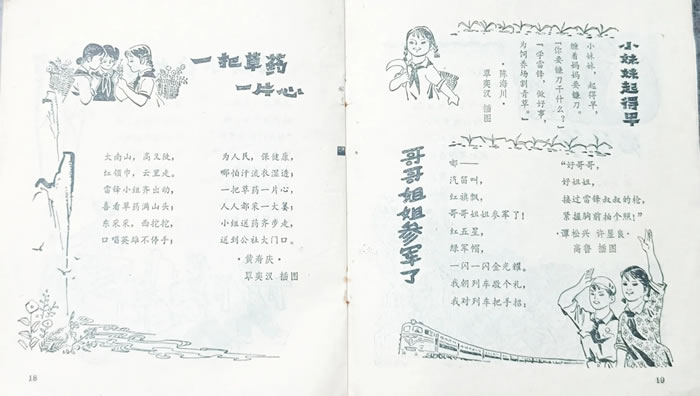 一把草药
一片心
大南山，高又陡，
红领巾，云里走。
雷锋小组齐出动，
喜看草药满山头；
东采采，西挖挖，
口唱英雄不停手；
为人民，保健康，
哪怕汗流衣湿透，
一把草药一片心，
人人都采一大篓；
小组送药齐步走，
送到公社大门口。
·黄寿庆·
覃奕汉 插图
18
小妹妹起得早
小妹妹，起得早，
缠着妈妈要镰刀。
“你要镰刀干什么？”
“学雷锋，做好事，
为饲养场割青草。”
·陈海川·
覃奕汉 插图
哥哥姐姐参军了
嘟——
汽笛叫，
红旗飘，
哥哥姐姐参军了！
红五星，
绿军帽，
一闪一闪金光耀。
我朝列车敬个礼，
我对列车把手招：
“好哥哥，
好姐姐，
接过雷锋叔叔的枪，
紧握胸前拍个照！”
·谭松兴 许显良·
高鲁 插图
19